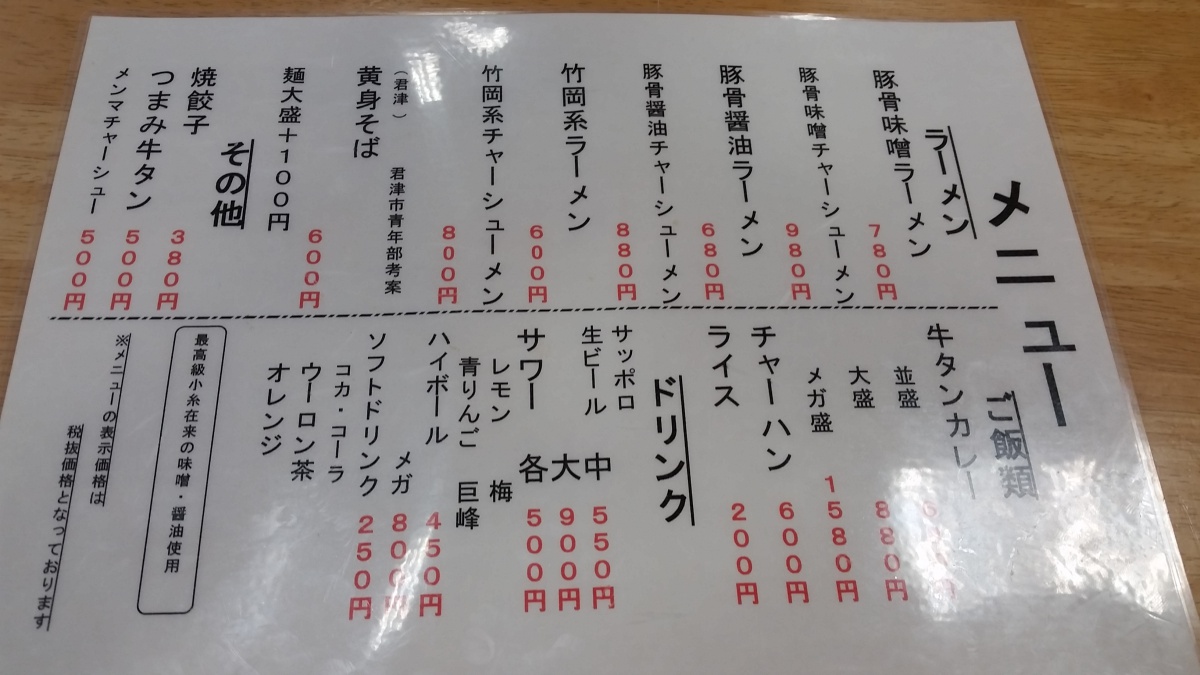 メニュー
ラーメン
豚骨味噌ラーメン 780円
豚骨味噌チャーシューメン 980円
豚骨醤油ラーメン 680円
豚骨醤油チャーシューメン 880円
竹岡系ラーメン 600円
竹岡系チャーシューメン 800円
(君津) 君津市青年部考案
黄身そば 600円
麺大盛+100円
その他
焼餃子 380円
つまみ牛タン 500円
メンマチャーシュー 500円
ご飯類
牛タンカレー
並盛
大盛 880円
メガ盛 1580円
チャーハン 600円
ライス 200円
ドリンク
サッポロ
生ビール 中 550円
大 900円
サワー 各 500円
レモン 梅
青りんご 巨峰
ハイボール 450円
メガ 800円
ソフトドリンク 250円
コカ・コーラ
ウーロン茶
オレンジ
最高級小糸在来の味噌・醤油使用
※メニューの表示価格は
税抜価格となっております